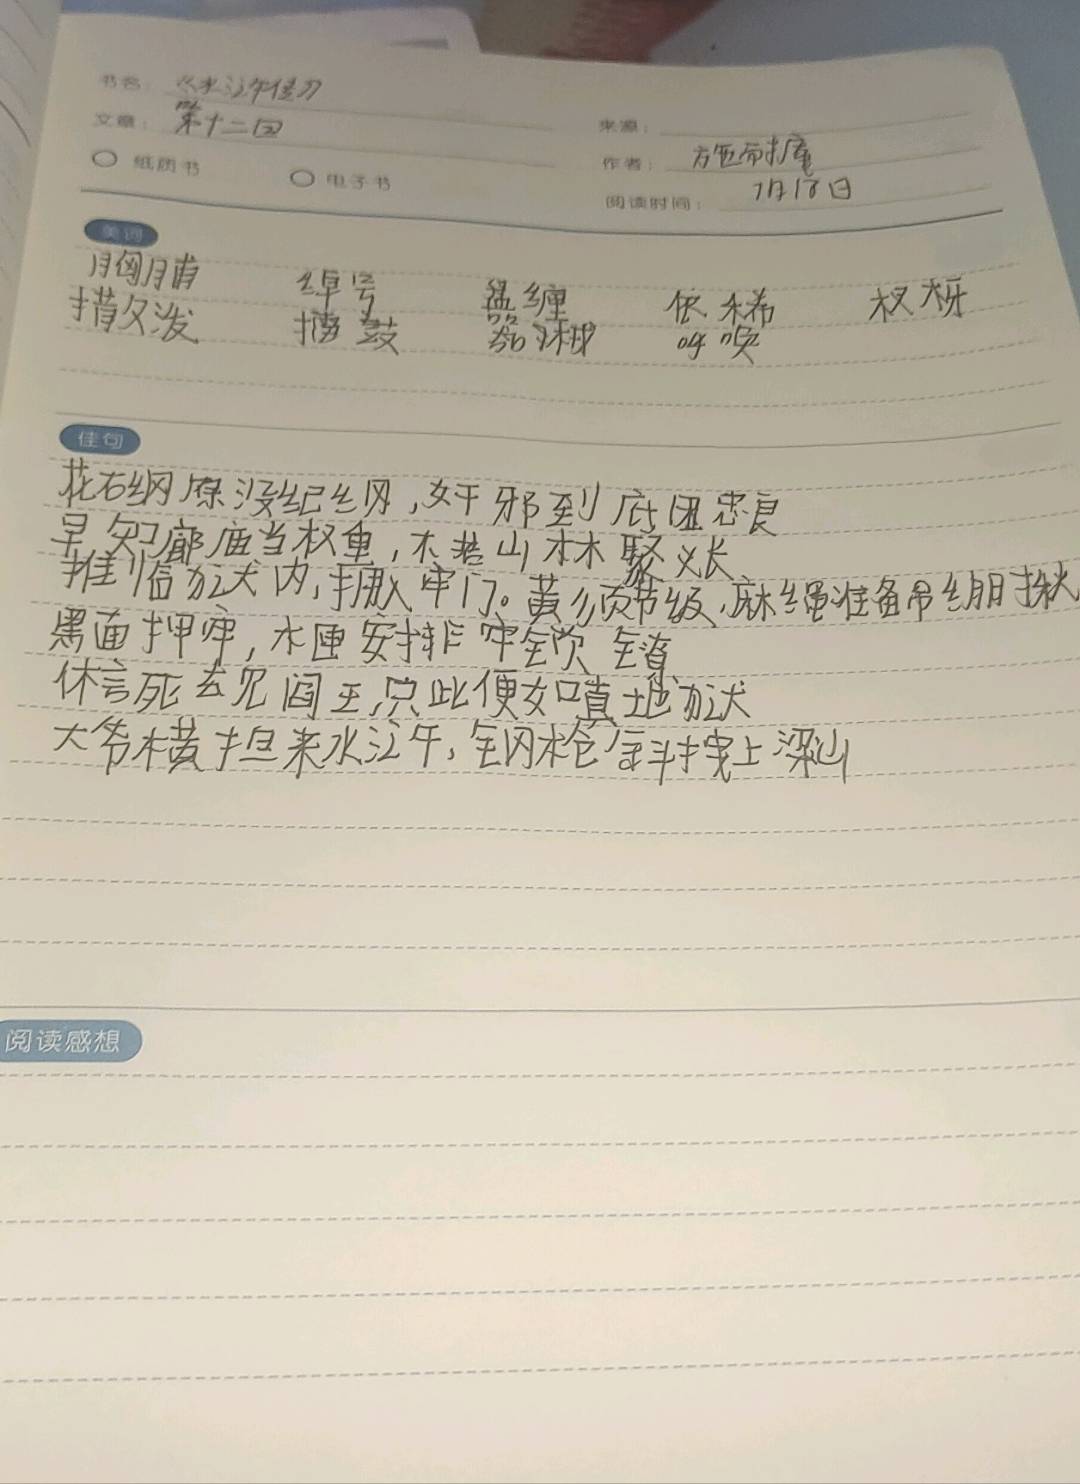 书名：《水浒传》
文章：第十二回
来源：
纸质书 电子书
作者：施耐庵
阅读时间：1月18日
美词
胸脯 绰号 盘缠 依稀 杈枒
撒泼 擂鼓 呼唤
佳句
花石纲原没纪纲，奸邪到底困忠良
早知廊庙当权重，不若山林聚义长
推临狱内，押入牢门。黄须节级，麻绳准备吊绷揪
黑面押牢，木匣安排牢锁镣
休言死去见阎王，只此便如真地狱
大斧横担来水浒，钢枪斜拽上梁山
阅读感想